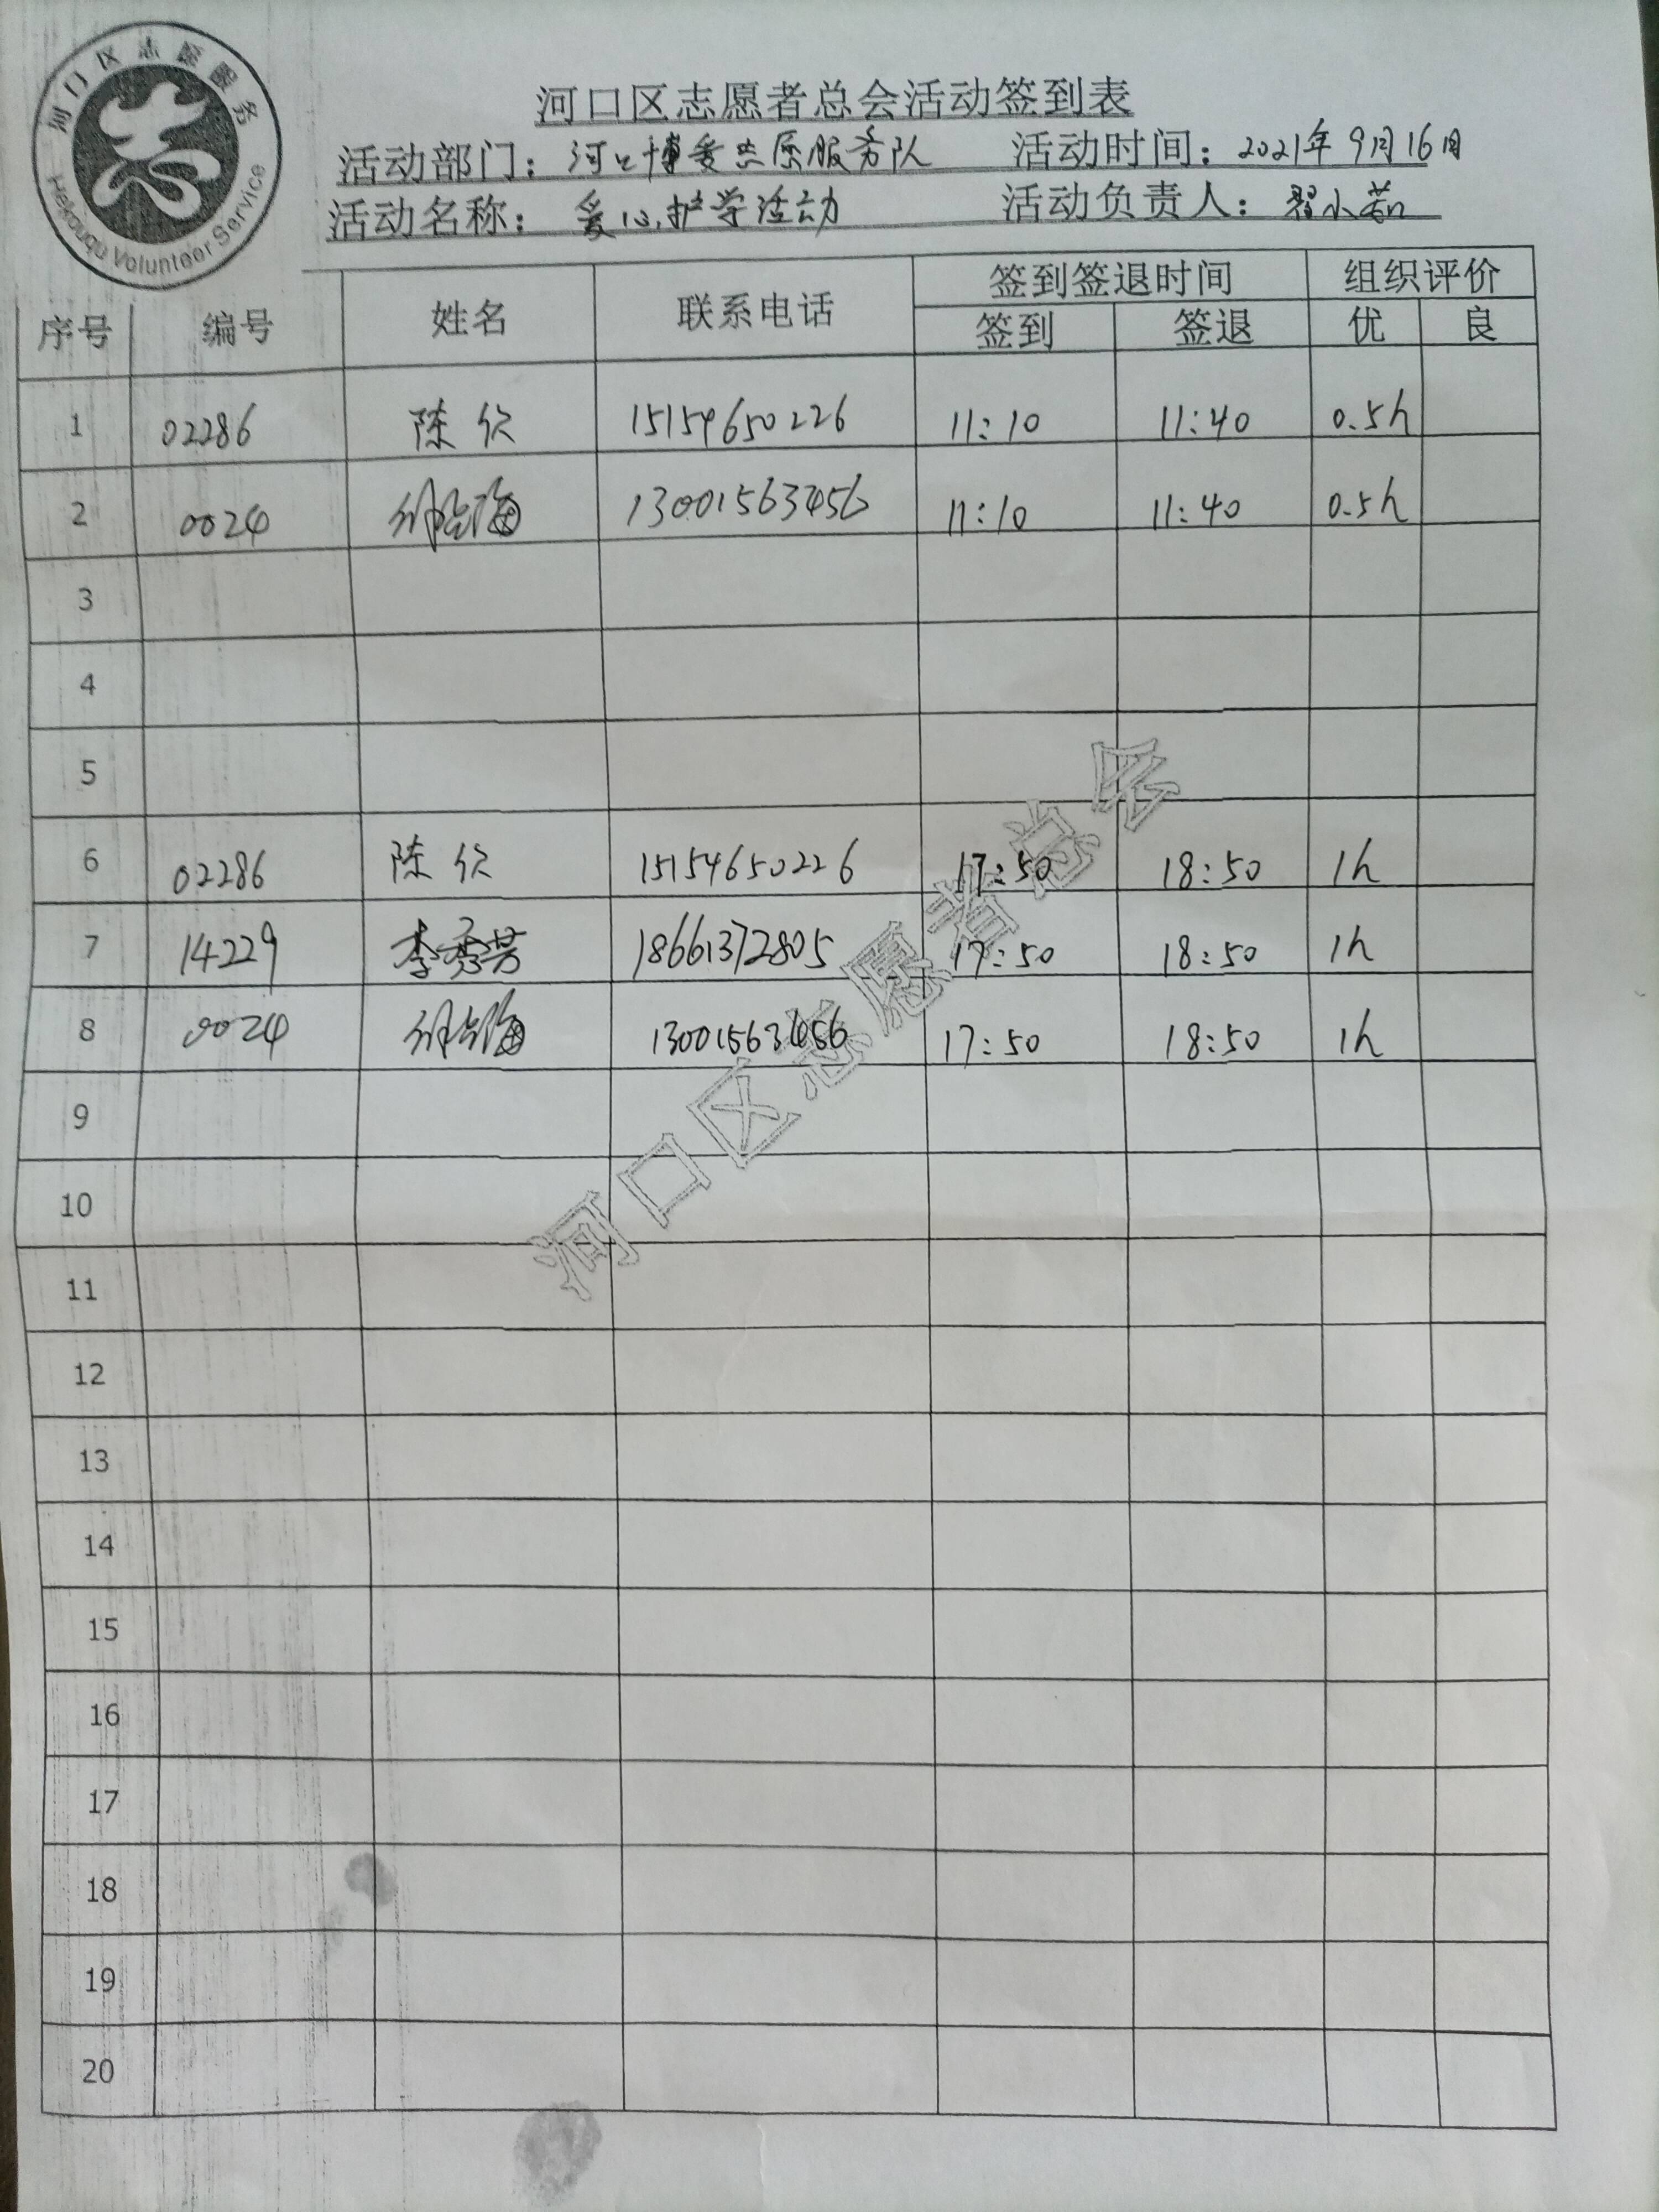 河门区志愿服务
Hekouqu Volunteer Service
河口区志愿者总会活动签到表
活动部门：河口博爱志愿服务队 活动时间：2021年9月16日
活动名称：爱心护学活动 活动负责人：翟小茹
序号 编号 姓名 联系电话 签到签退时间 组织评价
签到 签退 优 良
1 02286 陈 15154650226 11:10 11:40 0.5h
2 0024 13001563456 11:10 11:40 0.5h
3
4
5
6 02286 陈 15154650226 17:50 18:50 1h
7 14229 李秀芳 18661372805 17:50 18:50 1h
8 0024 13001563456 17:50 18:50 1h
9
10
11
12
13
14
15
16
17
18
19
20
河口区志愿者总会